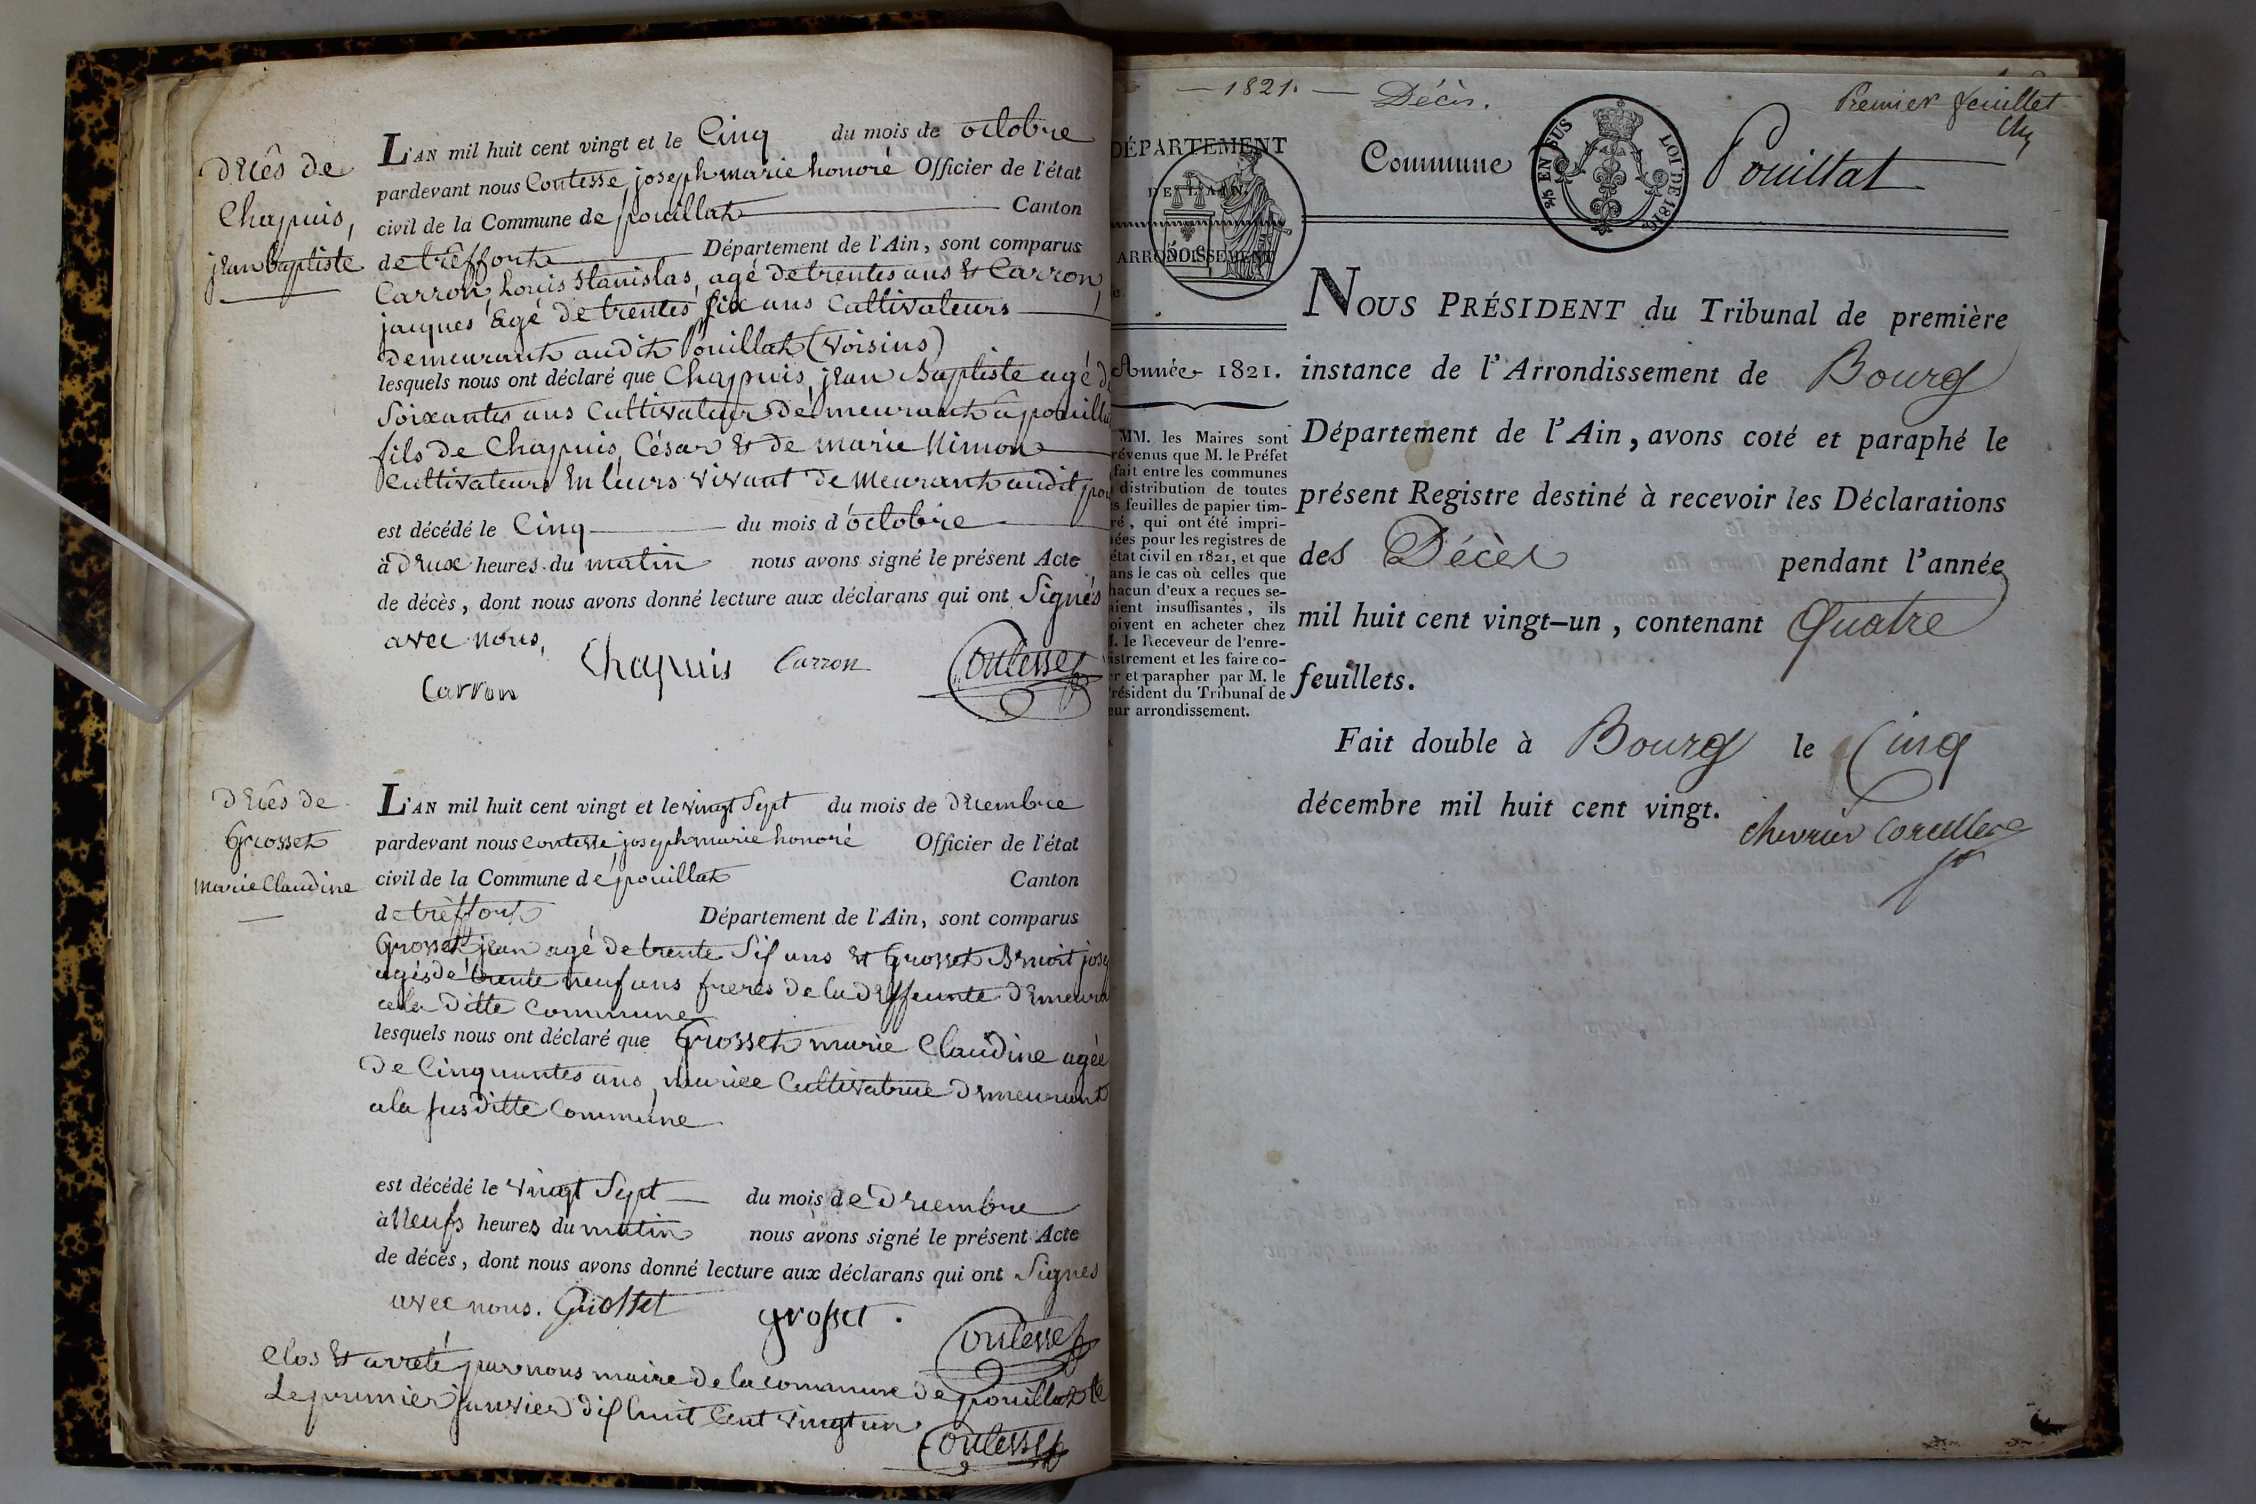 décès de
Chapuis,
jean baptiste
L'AN mil huit cent vingt et le Cinq du mois de octobre
pardevant nous Contesse, joseph marie honoré Officier de l'état
civil de la Commune de pouillat Canton
de tréffort Département de l'Ain, sont comparus
Carron, Louis Stanislas, agé de trentes ans et Carron,
jacques agé de trentes six ans Cultivateurs
demeurant audit Pouillat (voisins)
lesquels nous ont déclaré que Chapuis, jean Baptiste agé d
Soixantes ans Cultivateur démeurant à pouilla
fils de Chapuis César et de marie
Cultivateurs En leurs vivant demeurant audit pou
est décédé le Cinq du mois d'octobre
à deux heures du matin nous avons signé le présent Acte
de décès, dont nous avons donné lecture aux déclarans qui ont Signés
avec nous,
Carron Chapuis Carron Contesse
décès de
Grosset
Marie Claudine
L'AN mil huit cent vingt et le vingt Sept du mois de décembre
pardevant nous contesse, joseph marie honoré Officier de l'état
civil de la Commune de pouillat Canton
de tréffort Département de l'Ain, sont comparus
Grosset jean agé de trente Six ans et Grosset Benoit jose
agés de trente neuf ans freres de la deffeunte demeura
a la ditte Commune
lesquels nous ont déclaré que Grosset marie Claudine agée
de Cinquantes ans, mariée Cultivatrice demeurant
a la susditte Commune
est décédé le vingt Sept du mois de décembre
à Neufs heures du matin nous avons signé le présent Acte
de décès, dont nous avons donné lecture aux déclarans qui ont Signés
avec nous. Grosset grosset. Contesse
Clos et arreté par nous maire de la commune de pouillat le
Le premier janvier dix huit Cent vingt un
Contesse
— 1821. — Décès.
Premier feuillet
DÉPARTEMENT
DE L'AIN.
ARRONDISSEMENT
50 C
Année 1821.
MM. les Maires sont
révenus que M. le Préfet
fait entre les communes
distribution de toutes
s feuilles de papier tim-
ré, qui ont été impri-
ées pour les registres de
état civil en 1821, et que
ans le cas où celles que
hacun d'eux a reçues se-
aient insuffisantes, ils
oivent en acheter chez
M. le Receveur de l'enre-
istrement et les faire co-
er et parapher par M. le
résident du Tribunal de
eur arrondissement.
Commune Pouillat
EN SUS LOI DE 1816
NOUS PRÉSIDENT du Tribunal de première
instance de l'Arrondissement de Bourg
Département de l'Ain, avons coté et paraphé le
présent Registre destiné à recevoir les Déclarations
des Décès pendant l'année
mil huit cent vingt-un, contenant Quatre
feuillets.
Fait double à Bourg le Cinq
décembre mil huit cent vingt.
chevrier Corcelles